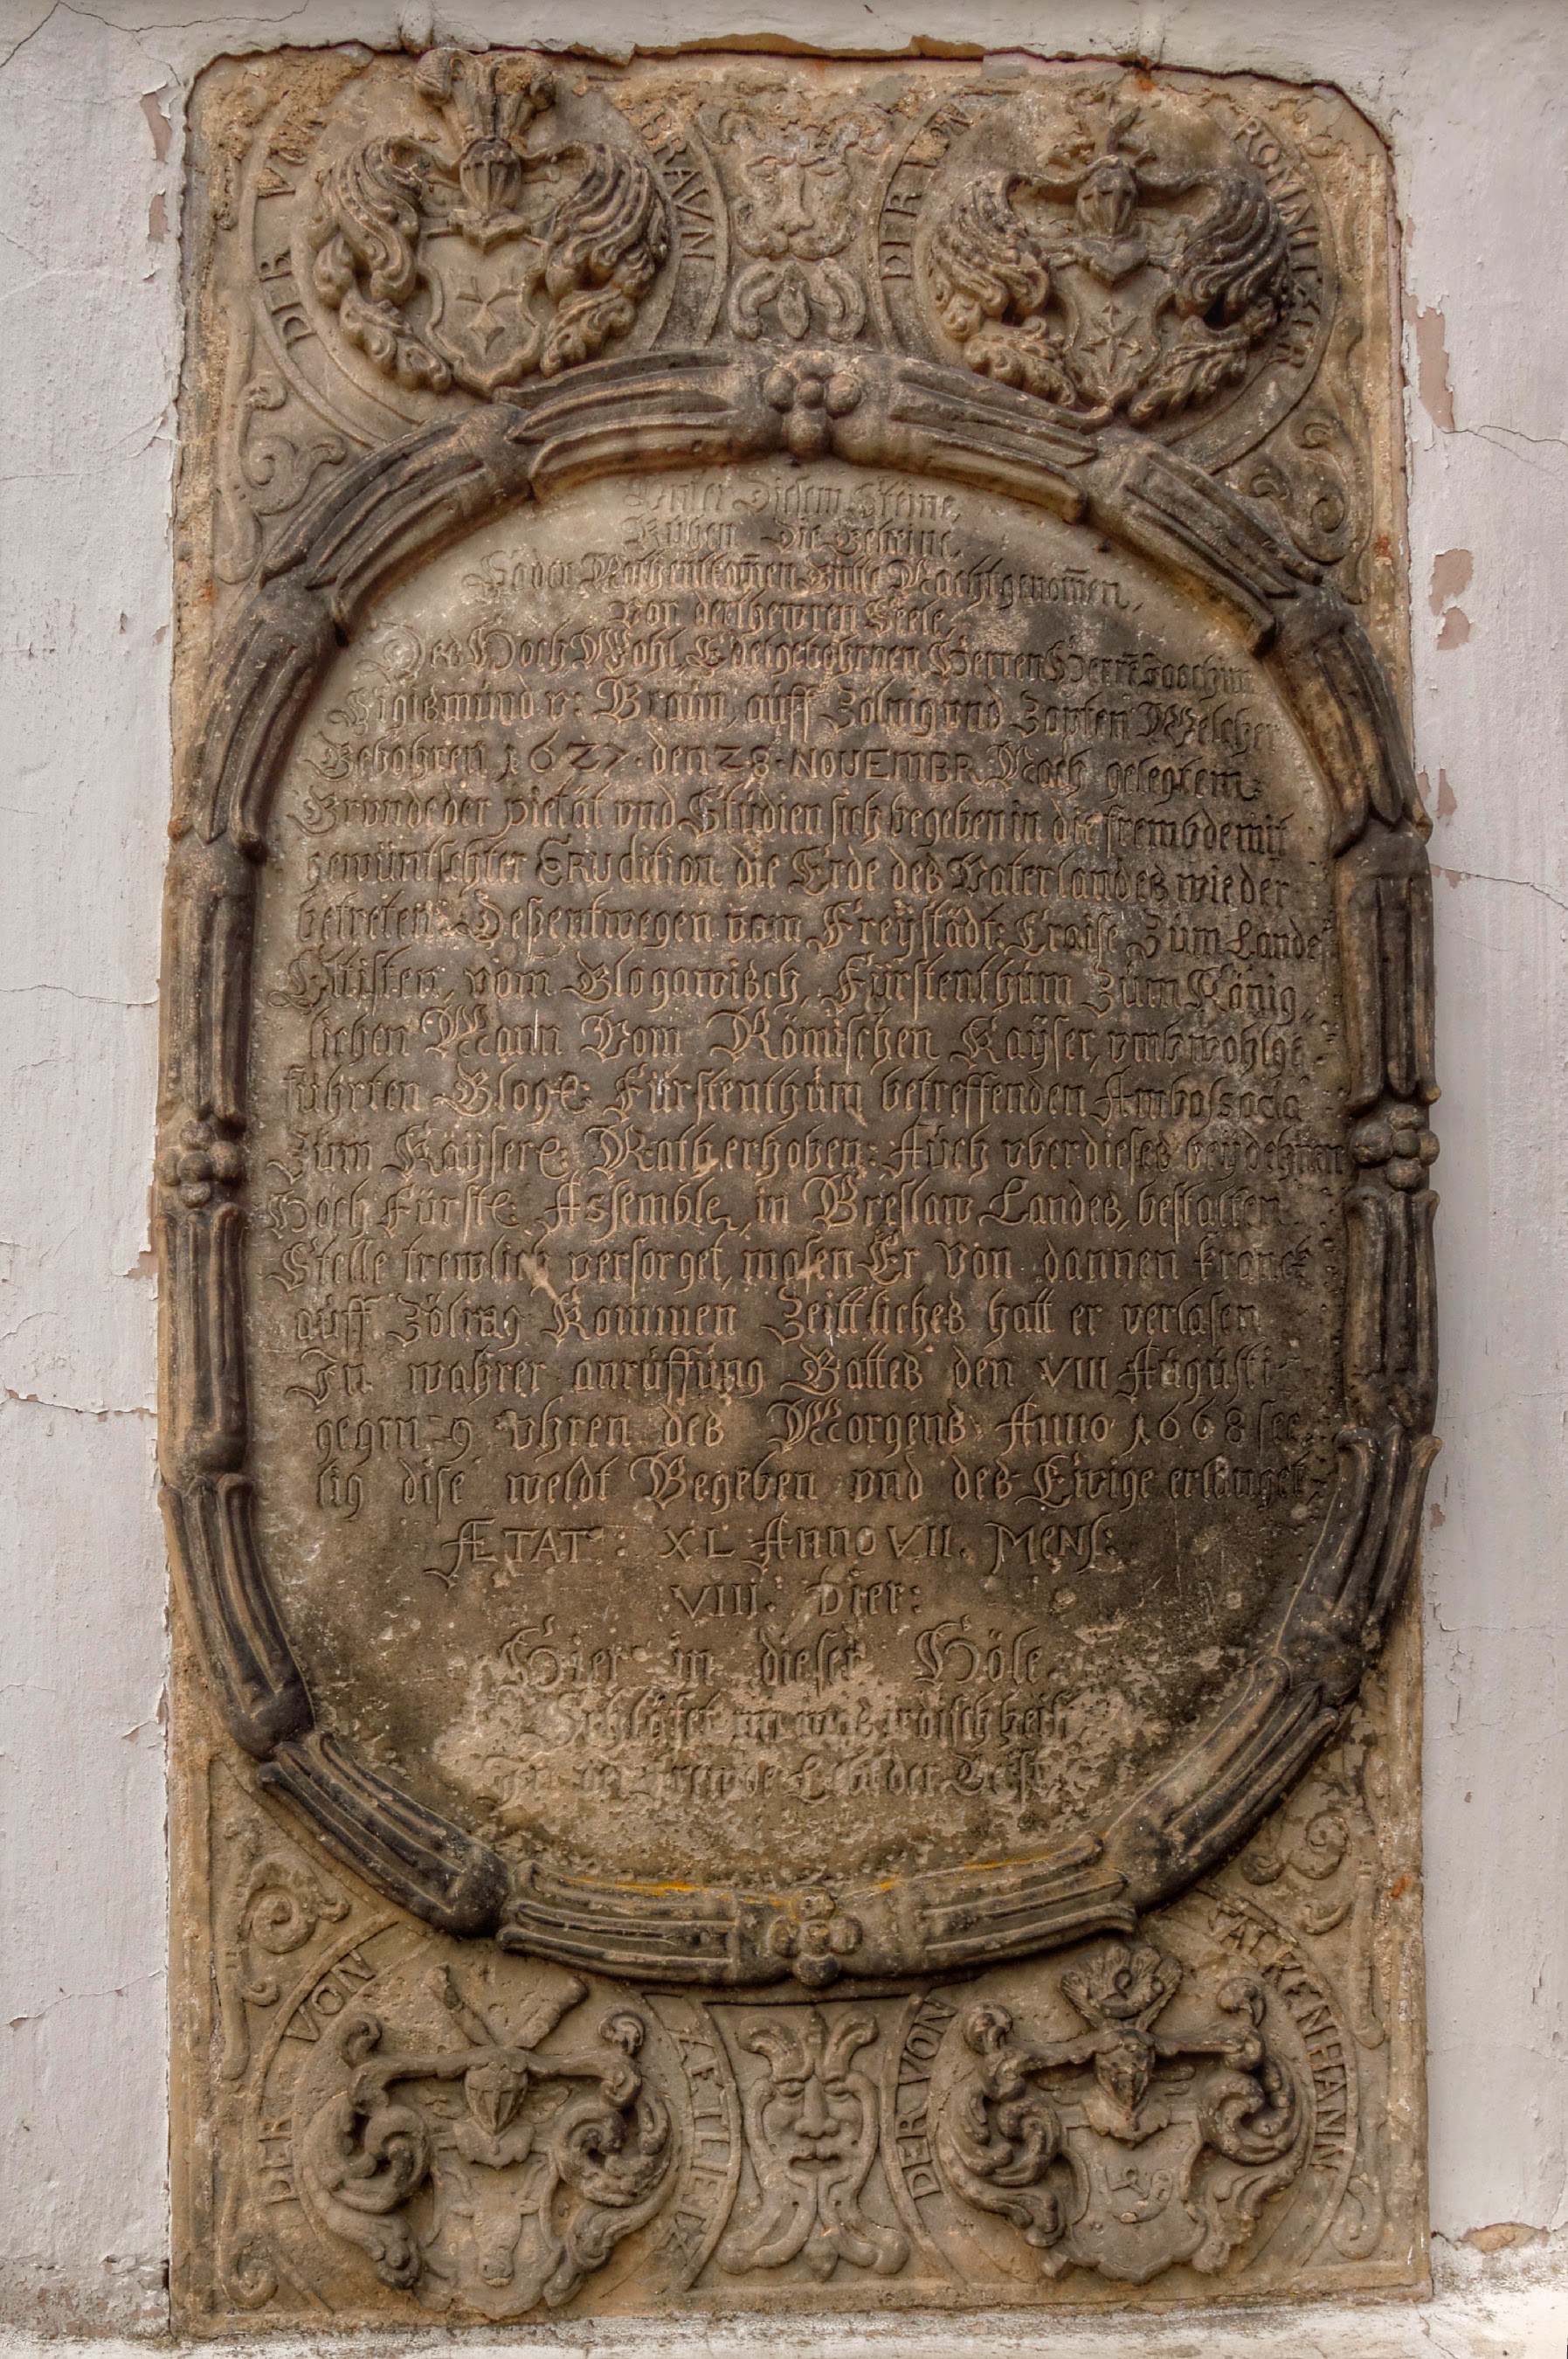 DER V
BRAVN
DER VON
ROMNI
Unter Diesem Steine,
Ruhen die Gebeine,
Zur Nacht genom̄en,
von der thewren Seele,
Des Hoch Wohl Edelgebohrnen Herren Herrn Joachim
Sigismund v: Braun, auff Zölnig und Welcher
Gebohren 1627. den 28. NOUEMBR. Nach gelegtem
Grunde der pietät vnd Studien sich begeben in die frembde mit
gewüntschter ERUdition die Erde des Vaterlandes wieder
betreten: Deßentwegen vom Freÿstädt: Craise Zum Lande
Eltisten, vom Glogawisch, Fürstenthum Zum König,,
lichen Mann Vom Römischen Kaÿser, vmb wohlge
führten Glog: Fürstenthum betreffenden Ambassada
Zum Kaÿser: Rath erhoben: Auch vber dieses bey dehnen
Hoch Fürst: Assemble, in Breslaw Landes, bestalten
Stelle trewlich versorget, masen Er Von dannen kranck
auff Zölnig Kommen Zeittliches hatt er verlasen
In wahrer anruffung Gottes den VIII Augusti
gegen 9 vhren des Morgens Anno 1668 see
lig dise weldt Begeben vnd des Ewige erlanget
ÆTAT: XL Anno VII. Mens:
VIII: Dier:
Hier in dieser Höle
Schläfet was irdisch heist
der Geist
DER VON
DER VON
FALCKENHANN